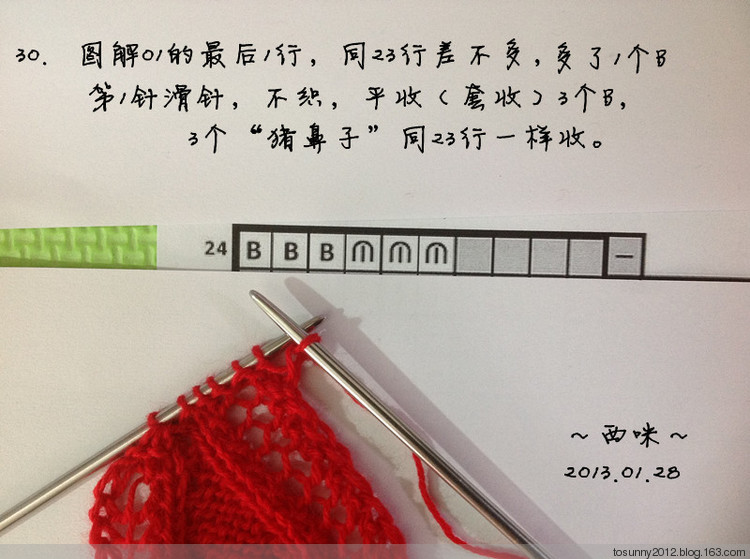 30. 图解01的最后1行，同23行差不多，多了1个B
第1针滑针，不织，平收（套收）3个B，
3个“猪鼻子”同23行一样收。
24 B B B ⋒ ⋒ ⋒ —
～西咪～
2013.01.28
tosunny2012.blog.163.com